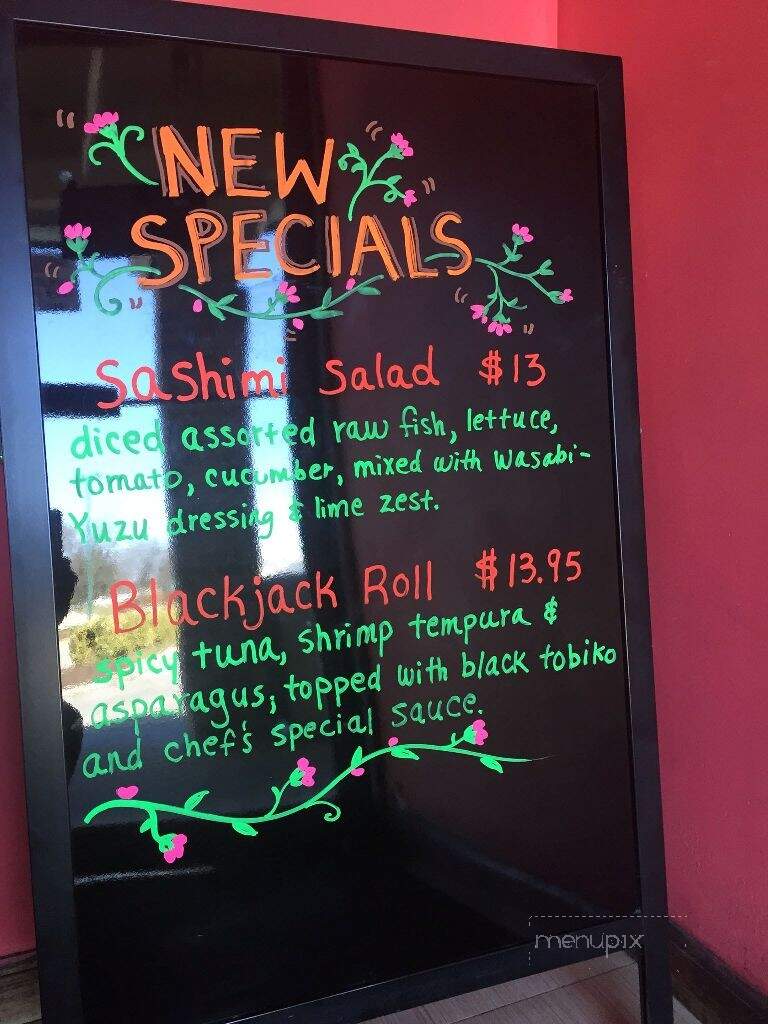 NEW
SPECIALS
Sashimi Salad $13
diced assorted raw fish, lettuce,
tomato, cucumber, mixed with wasabi-
Yuzu dressing & lime zest.
Blackjack Roll $13.95
spicy tuna, shrimp tempura &
asparagus, topped with black tobiko
and chef's special sauce.
menupix